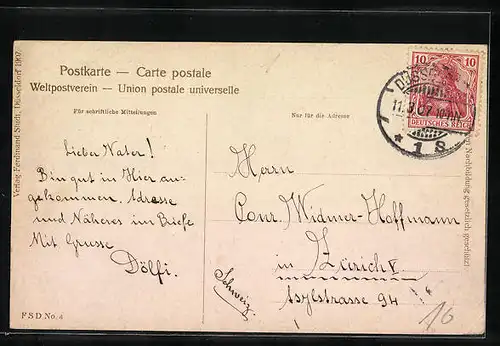 Postkarte — Carte postale
Weltpostverein — Union postale universelle
Für schriftliche Mitteilungen
Nur für die Adresse
Verlag Ferdinand Stadt, Düsseldorf 1907.
10 10
DEUTSCHES REICH
DÜSSE
11. 07. 10-11N
* 1 S.
Nachbildung gesetzlich geschützt
Lieber Vater!
Bin gut in Hier an-
gekommen. Adresse
und Näheres im Briefe
Mit Grusse
Dölfi.
Herrn
Conr. Widmer-Hoffmann
in Zürich V
Asylstrasse 94
Schweiz
FSD.No. 4
10